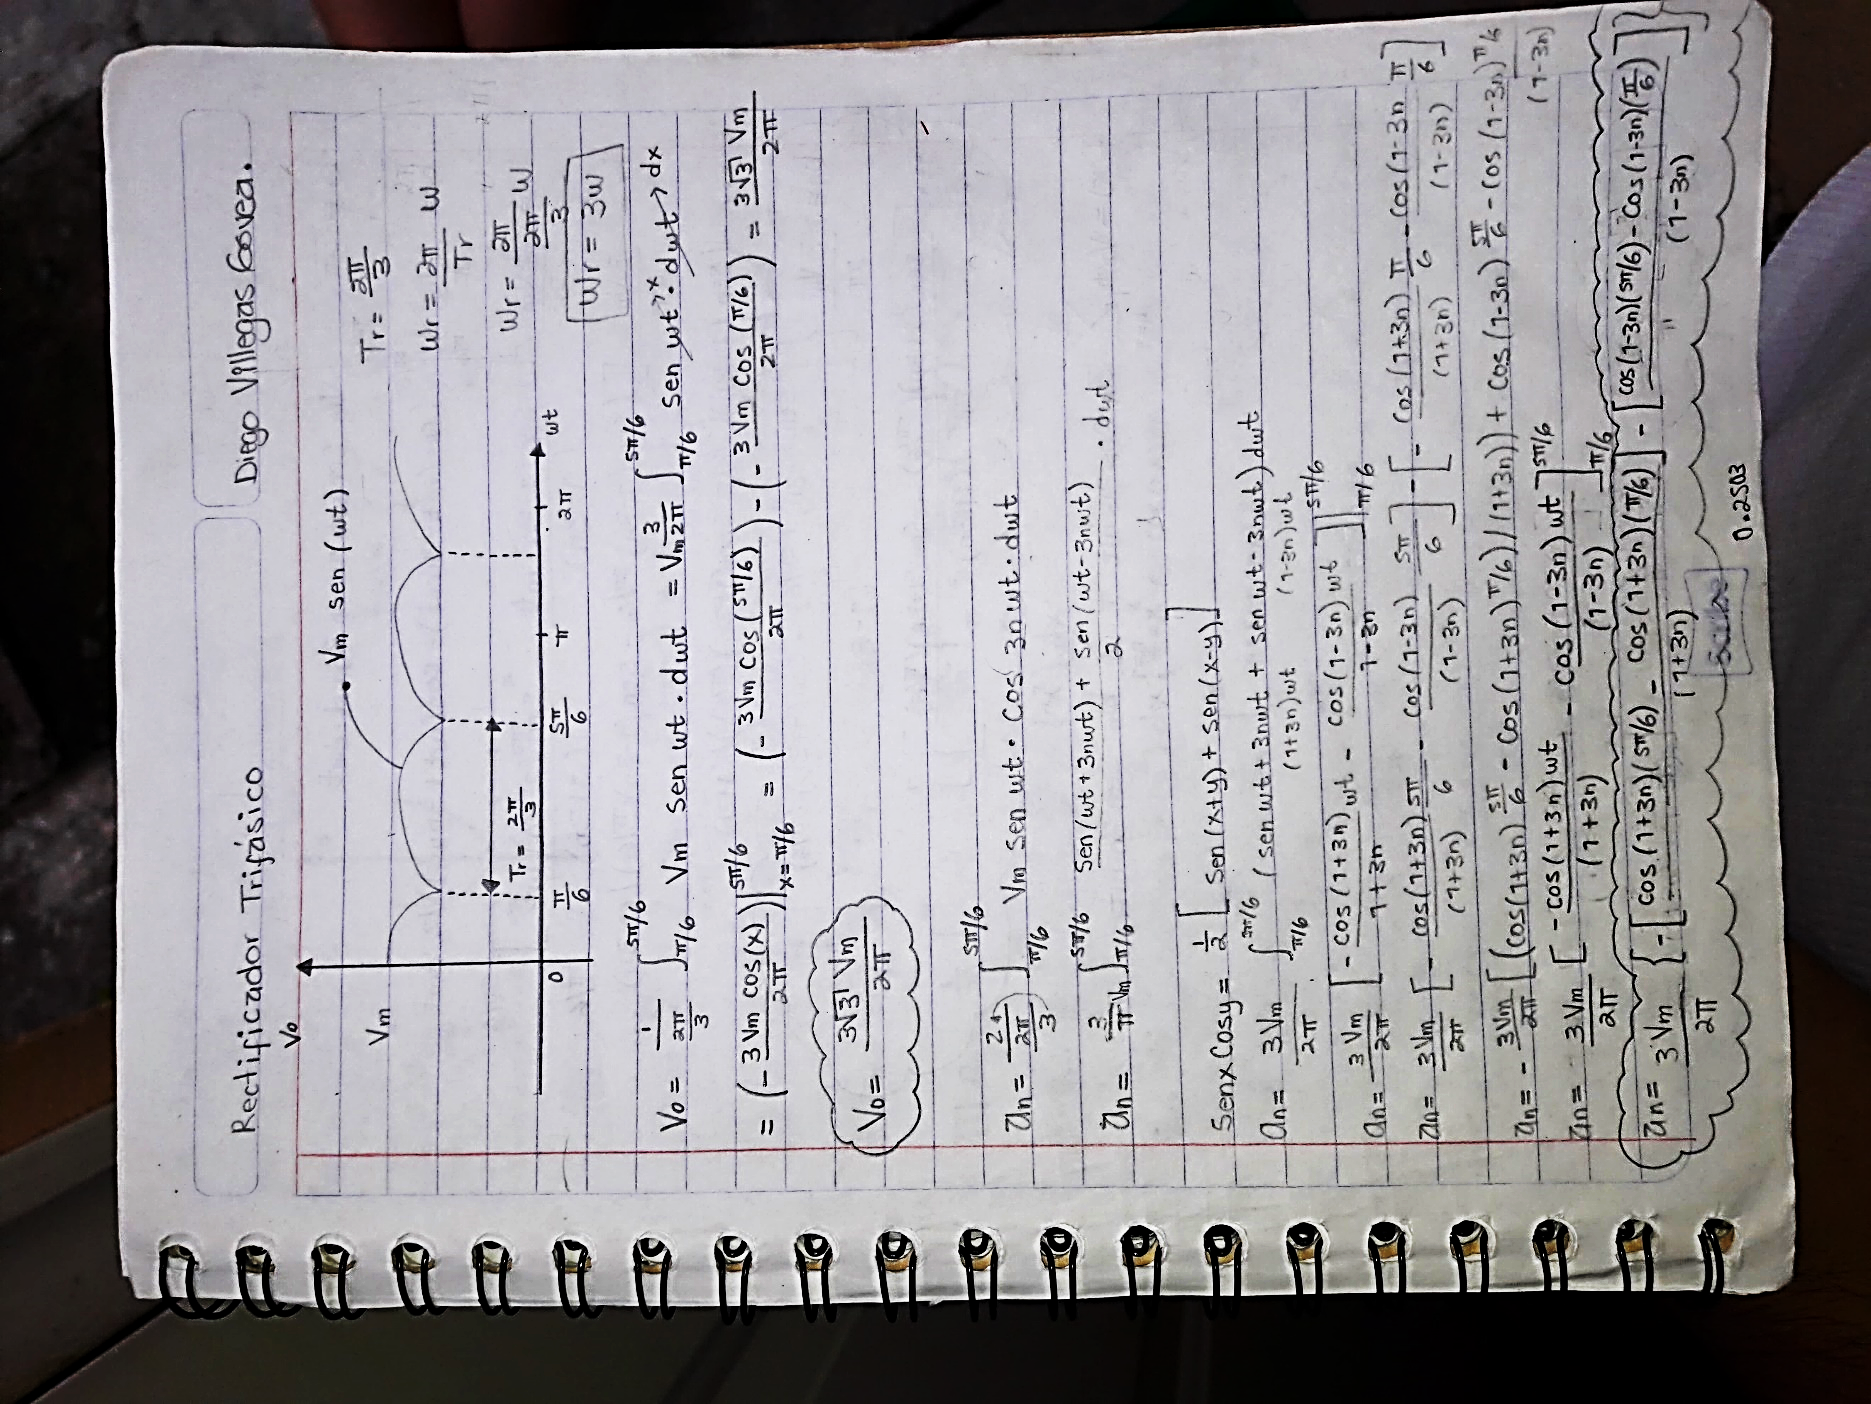 Rectificador Trifásico
Diego Villegas Govea.
Vo
Vm
Vm sen (wt)
Tr = 2π/3
π/6
5π/6
π
2π
wt
0
Tr = 2π/3
Wr = 2π/Tr W
Wr = 2π/(2π/3) W
Wr = 3W
Vo = 1/(2π/3) ∫π/6^5π/6 Vm sen wt · dwt = Vm 3/2π ∫π/6^5π/6 sen wt→x · dwt→dx
= (- 3 Vm cos(x)/2π)|x=π/6^5π/6 = (- 3 Vm Cos (5π/6)/2π) - (- 3 Vm Cos (π/6)/2π) = 3√3 Vm/2π
Vo = 3√3 Vm/2π
an = 2/(2π/3) ∫π/6^5π/6 Vm Sen wt · Cos 3n wt · dwt
an = 3/π Vm ∫π/6^5π/6 Sen (wt + 3nwt) + sen (wt - 3nwt)/2 · dwt
Senx Cosy = 1/2 [Sen (x+y) + sen (x-y)]
an = 3 Vm/2π ∫π/6^5π/6 (sen wt + 3nwt + sen wt - 3nwt) dwt
(1+3n)wt (1-3n)wt
an = 3 Vm/2π [- cos (1+3n) wt/1+3n - cos (1-3n) wt/1-3n]π/6^5π/6
an = 3 Vm/2π [- cos(1+3n) 5π/6/(1+3n) - cos (1-3n) 5π/6/(1-3n)] - [- cos (1+3n) π/6/(1+3n) - cos (1-3n π/6/(1-3n)]
an = - 3 Vm/2π [(cos(1+3n) 5π/6 - cos (1+3n) π/6)/(1+3n)) + cos (1-3n) 5π/6 - cos (1-3n) π/6/(1-3n)
an = 3 Vm/2π [- cos (1+3n) wt/(1+3n) - cos (1-3n) wt/(1-3n)]π/6^5π/6
an = 3 Vm/2π {- [cos (1+3n)(5π/6) - cos (1+3n)(π/6)/(1+3n)] - [cos (1-3n)(5π/6) - cos (1-3n)(π/6)/(1-3n)]]
0.2503